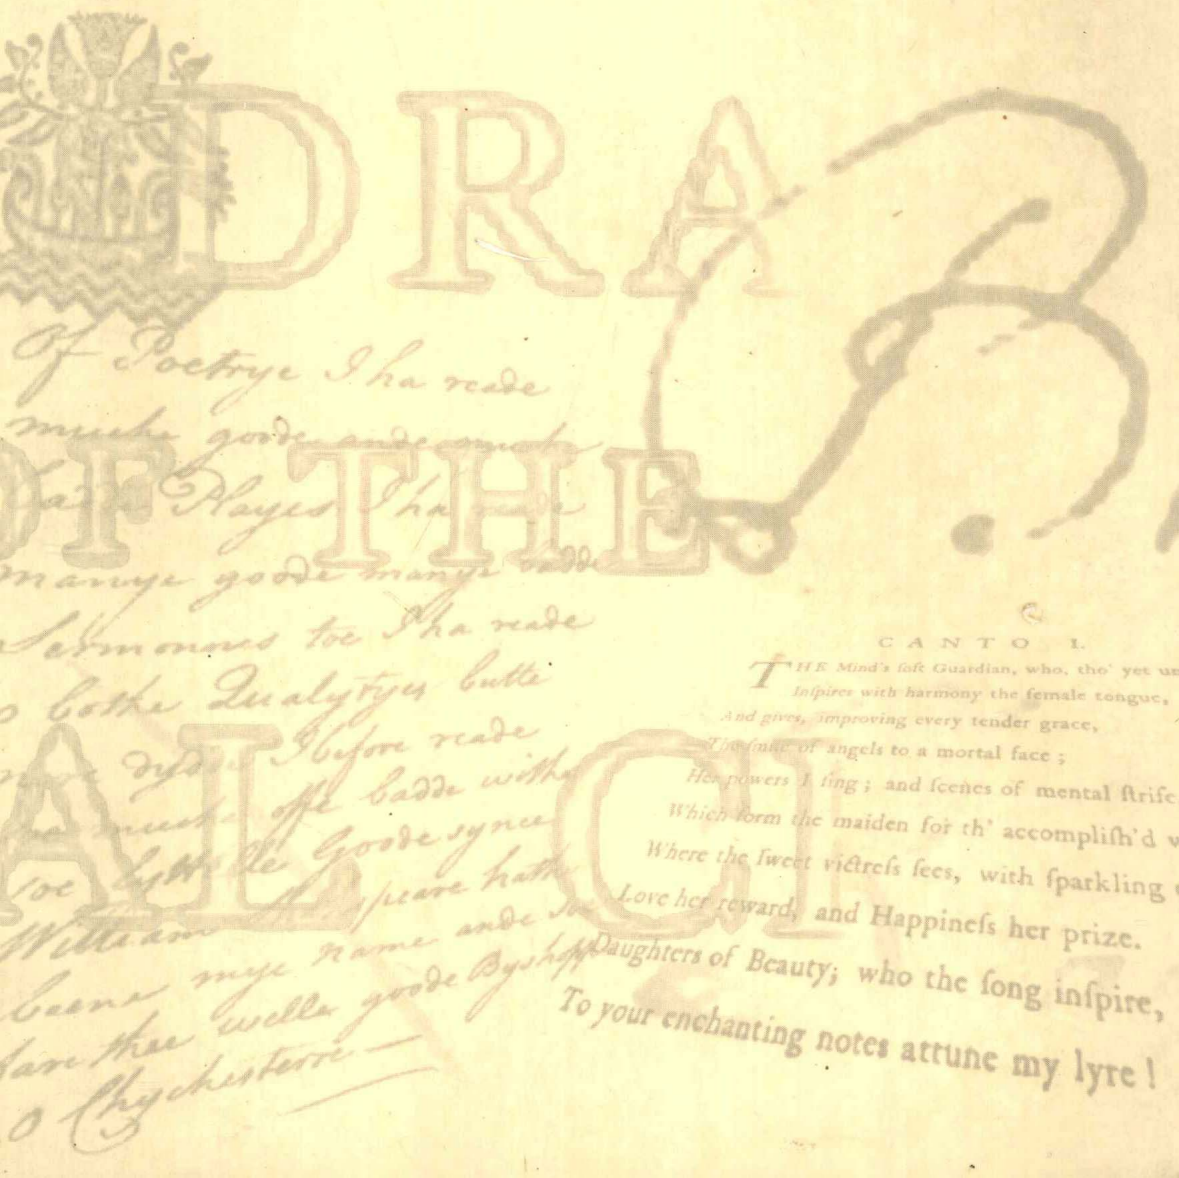 DRA
OF THE
AL
Of Poetrye I ha reade
muche goode ande muche
badde Playes I ha reade
manye goode manye badde
Sermonnes toe I ha reade
o bothe Qualytyes butte
dydde I before reade
muche offe badde withe
toe lyttelle Goode synce
William speare hath
beene mye name ande so
fare thee welle goode Byshopp
o Chychesterre
B
CANTO I.
THE Mind's ſoft Guardian, who, tho' yet un
Inſpires with harmony the female tongue,
And gives, improving every tender grace,
The ſmile of angels to a mortal face ;
Her powers I ſing ; and ſcenes of mental ſtrife
Which form the maiden for th' accompliſh'd w
Where the ſweet victreſs ſees, with ſparkling
Love her reward, and Happineſs her prize.
Daughters of Beauty; who the ſong inſpire,
To your enchanting notes attune my lyre !